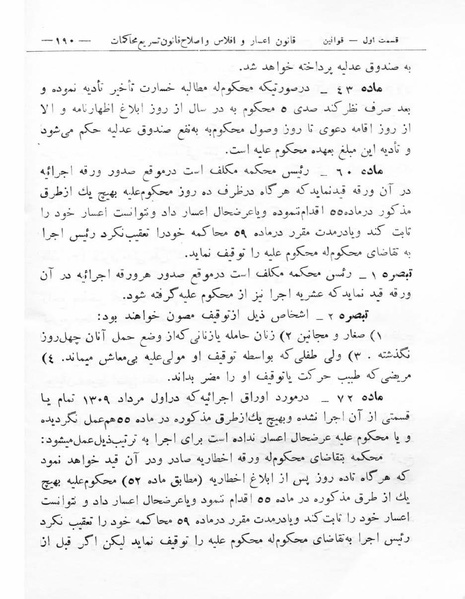 قسمت اول — قوانین قانون اعسار و افلاس و اصلاح قانون تسریع محاکمات — ۱۹۰ —
به صندوق عدلیه پرداخته خواهد شد.
ماده ۴۳ _ درصورتیکه محکوم‌له مطالبه خسارت تأخیر تأدیه نموده و
بعد صرف نظر کند صدی ۵ محکوم به در سال از روز ابلاغ اظهارنامه و الا
از روز اقامه دعوی تا روز وصول محکوم‌به به‌نفع صندوق عدلیه حکم می‌شود
و تأدیه این مبلغ بعهده محکوم علیه است.
ماده ۶۰ _ رئیس محکمه مکلف است درموقع صدور ورقه اجرائیه
در آن ورقه قید نماید که هرگاه درظرف ده روز محکوم‌علیه بهیچ یك از طرق
مذکور درماده ۵۵ اقدام ننموده ویا عرضحال اعسار داد و نتوانست اعسار خود را
ثابت کند ویا درمدت مقرر درماده ۵۹ محاکمه خودرا تعقیب نکرد رئیس اجرا
به تقاضای محکوم‌له محکوم علیه را توقیف نماید.
تبصره ۱ _ رئیس محکمه مکلف است درموقع صدور هر ورقه اجرائیه در آن
ورقه قید نماید که عشریه اجرا نیز از محکوم علیه گرفته شود.
تبصره ۲ _ اشخاص ذیل از توقیف مصون خواهند بود:
۱) صغار و مجانین ۲) زنان حامله یا زنانی که از وضع حمل آنان چهل روز
نگذشته . ۳) ولی طفلی که بواسطه توقیف او مولی علیه بی‌معاش میماند. ۴)
مریضی که طبیب حرکت یا توقیف او را مضر بداند.
ماده ۷۲ _ درمورد اوراق اجرائیه که دراول مرداد ۱۳۰۹ تمام یا
قسمتی از آن اجرا نشده وبهیچ یك از طرق مذکوره در ماده ۵۵ هم عمل نگردیده
و یا محکوم علیه عرضحال اعسار نداده است برای اجرا به ترتیب ذیل عمل میشود:
محکمه بتقاضای محکوم‌له ورقه اخطاریه صادر ودر آن قید خواهد نمود
که هرگاه تا ده روز پس از ابلاغ اخطاریه (مطابق ماده ۵۲) محکوم‌علیه بهیچ
یك از طرق مذکوره در ماده ۵۵ اقدام ننمود ویا عرضحال اعسار داد و نتوانست
اعسار خود را ثابت کند ویا درمدت مقرر درماده ۵۹ محاکمه خود را تعقیب نکرد
رئیس اجرا به تقاضای محکوم‌له محکوم علیه را توقیف نماید لیکن اگر قبل از